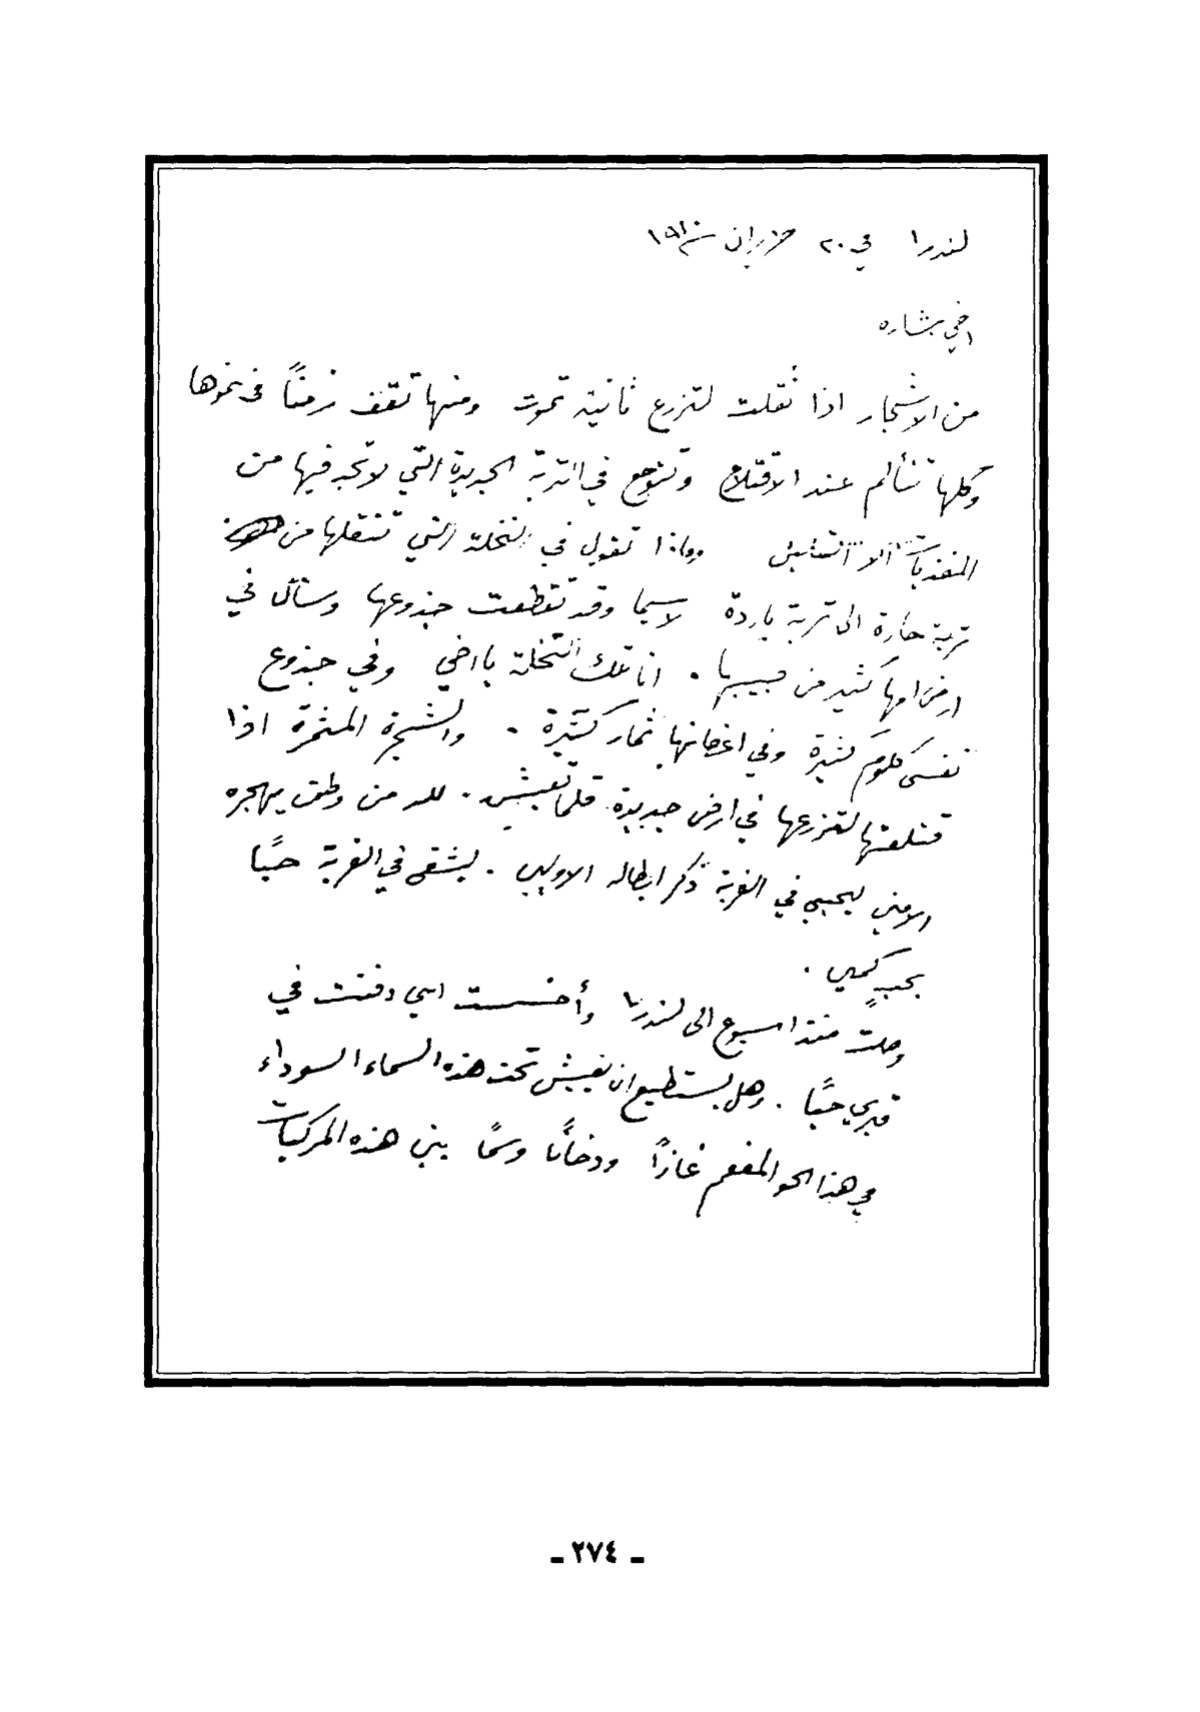 لندرا في ٢٠ حزيران سنة ١٩١٠
اخي بشاره
من الاشجار اذا نُقلت لتزرع ثانية تموت ومنها تقف زمنًا في نموها
وكلها تتألم عند الاقتلاع وتتوجع في التربة الجديدة التي لا تجد فيها من
المغذيات الا القليل وماذا تقول في النخلة التي تنقلها من
تربة حارة الى تربة باردة لاسيما وقد تقطعت جذوعها وسال في
ارض امها كثير من . انا تلك النخلة يا اخي وفي جذوع
نفسي كلوم كثيرة وفي اغصانها ثمار كثيرة . والشجرة المثمرة اذا
قتلعتها لتزرعها في ارض جديدة قلما تعيش . لله من وطن يهجره
الامين ليحيي في الغربة ذكر ابطاله الاولين . ليشقى في الغربة حبًّا
بحبيبٍ كمين .
وصلت منذ اسبوع الى لندرا وأحسست اني دفنت في
قبري حيًّا . وهل يستطيع ان يعيش تحت هذه السماء السوداء
في هذا الجو المفعم غازًا ودخانًا وسمًّا بين هذه المركبات
ـ ٢٧٤ ـ